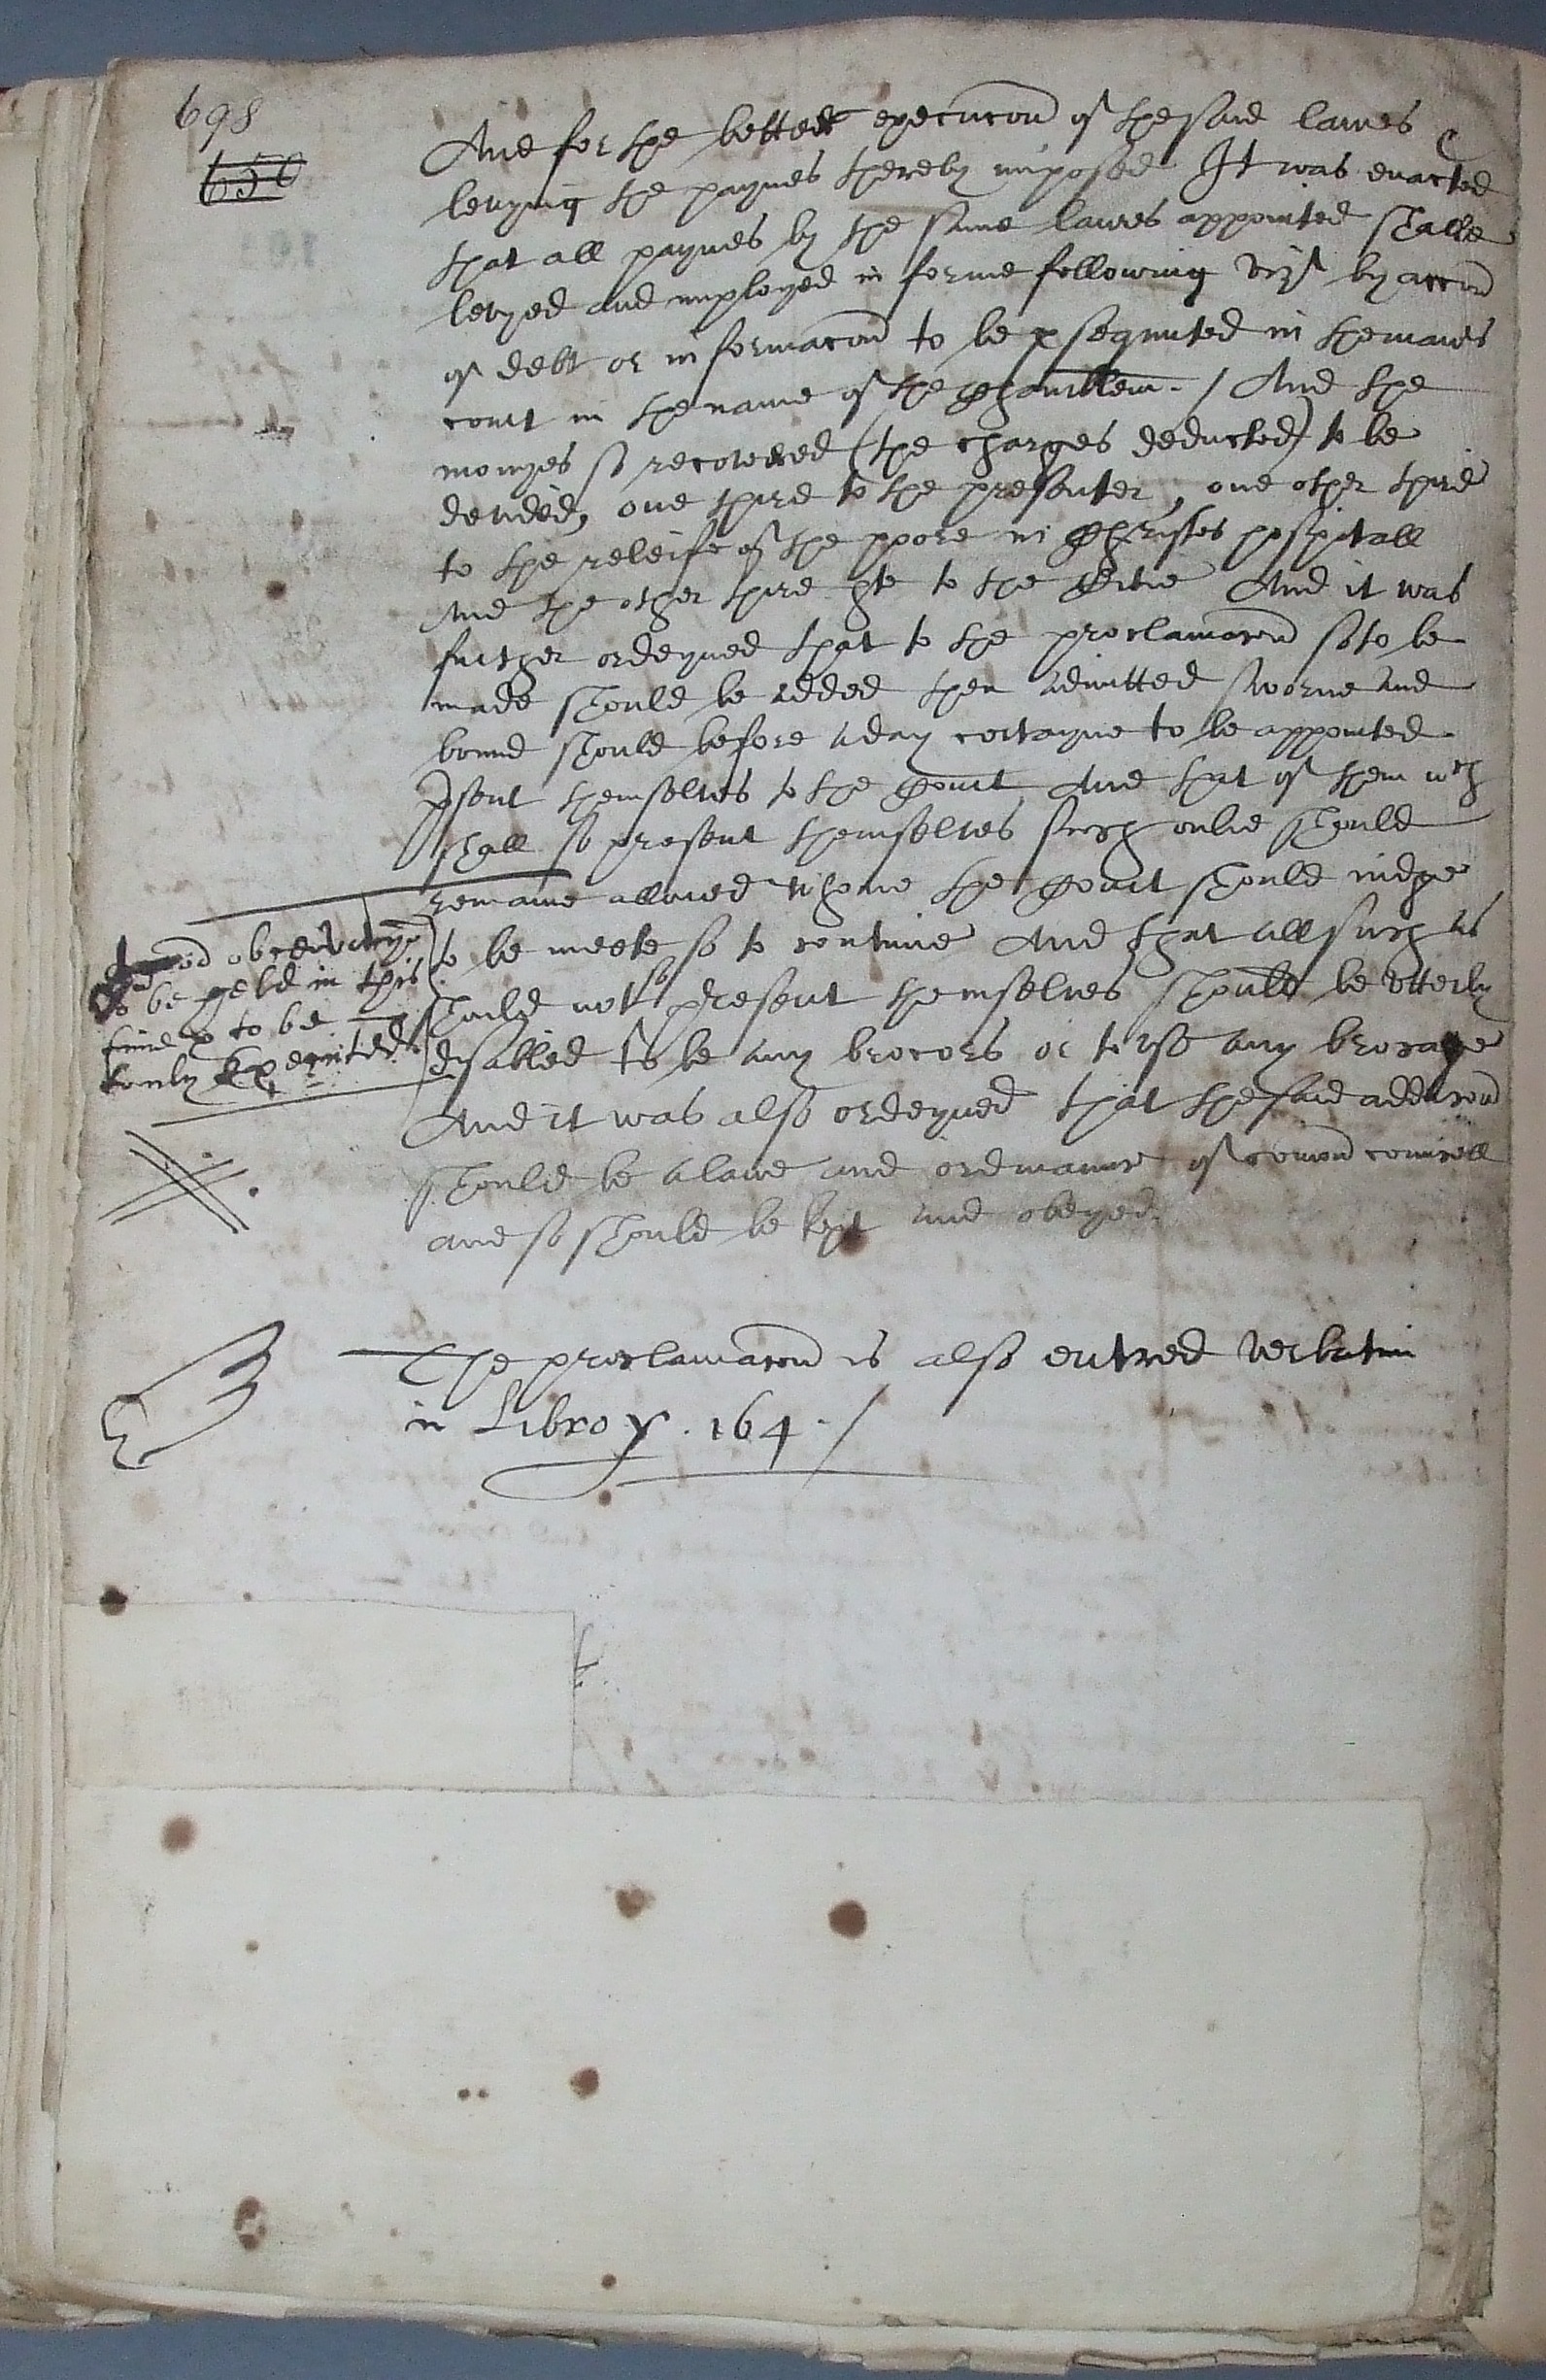 698
650
And for the better execucon of the said lawes &
levying the paynes thereby imposed It was enacted
that all paynes by the same lawes appointed shalbe
levyed and imployed in forme following vizt by accon
of debt or informacon to be psequuted in the maiors
court in the name of the Chamblein. / And the
monyes so recovered (the charges deducted) to be
devided, one third to the presenter, one other third
to the releife of the poore in Christes hospitall
And the other third to the Citie And it was
further ordeyned that to the proclamacon so to be
made should be added then admitted sworne and
bound should before a day certayne to be appointed
psent themselves to the Court And that of them wch
shall so present themselves such onlie should
remaine allowed whome the Court should iudge
to be meete so to contynue And that all such as
should not so present themselves should be utterly
disabled to be any brocors or to use any brocage
And it was also ordeyned that the said addicon
should be a lawe and ordinance of comon councell
and so should be kept and obeyed.
to be held in this
to be
The proclamacon is also entred verbatim
in Libro Y. 164 . /